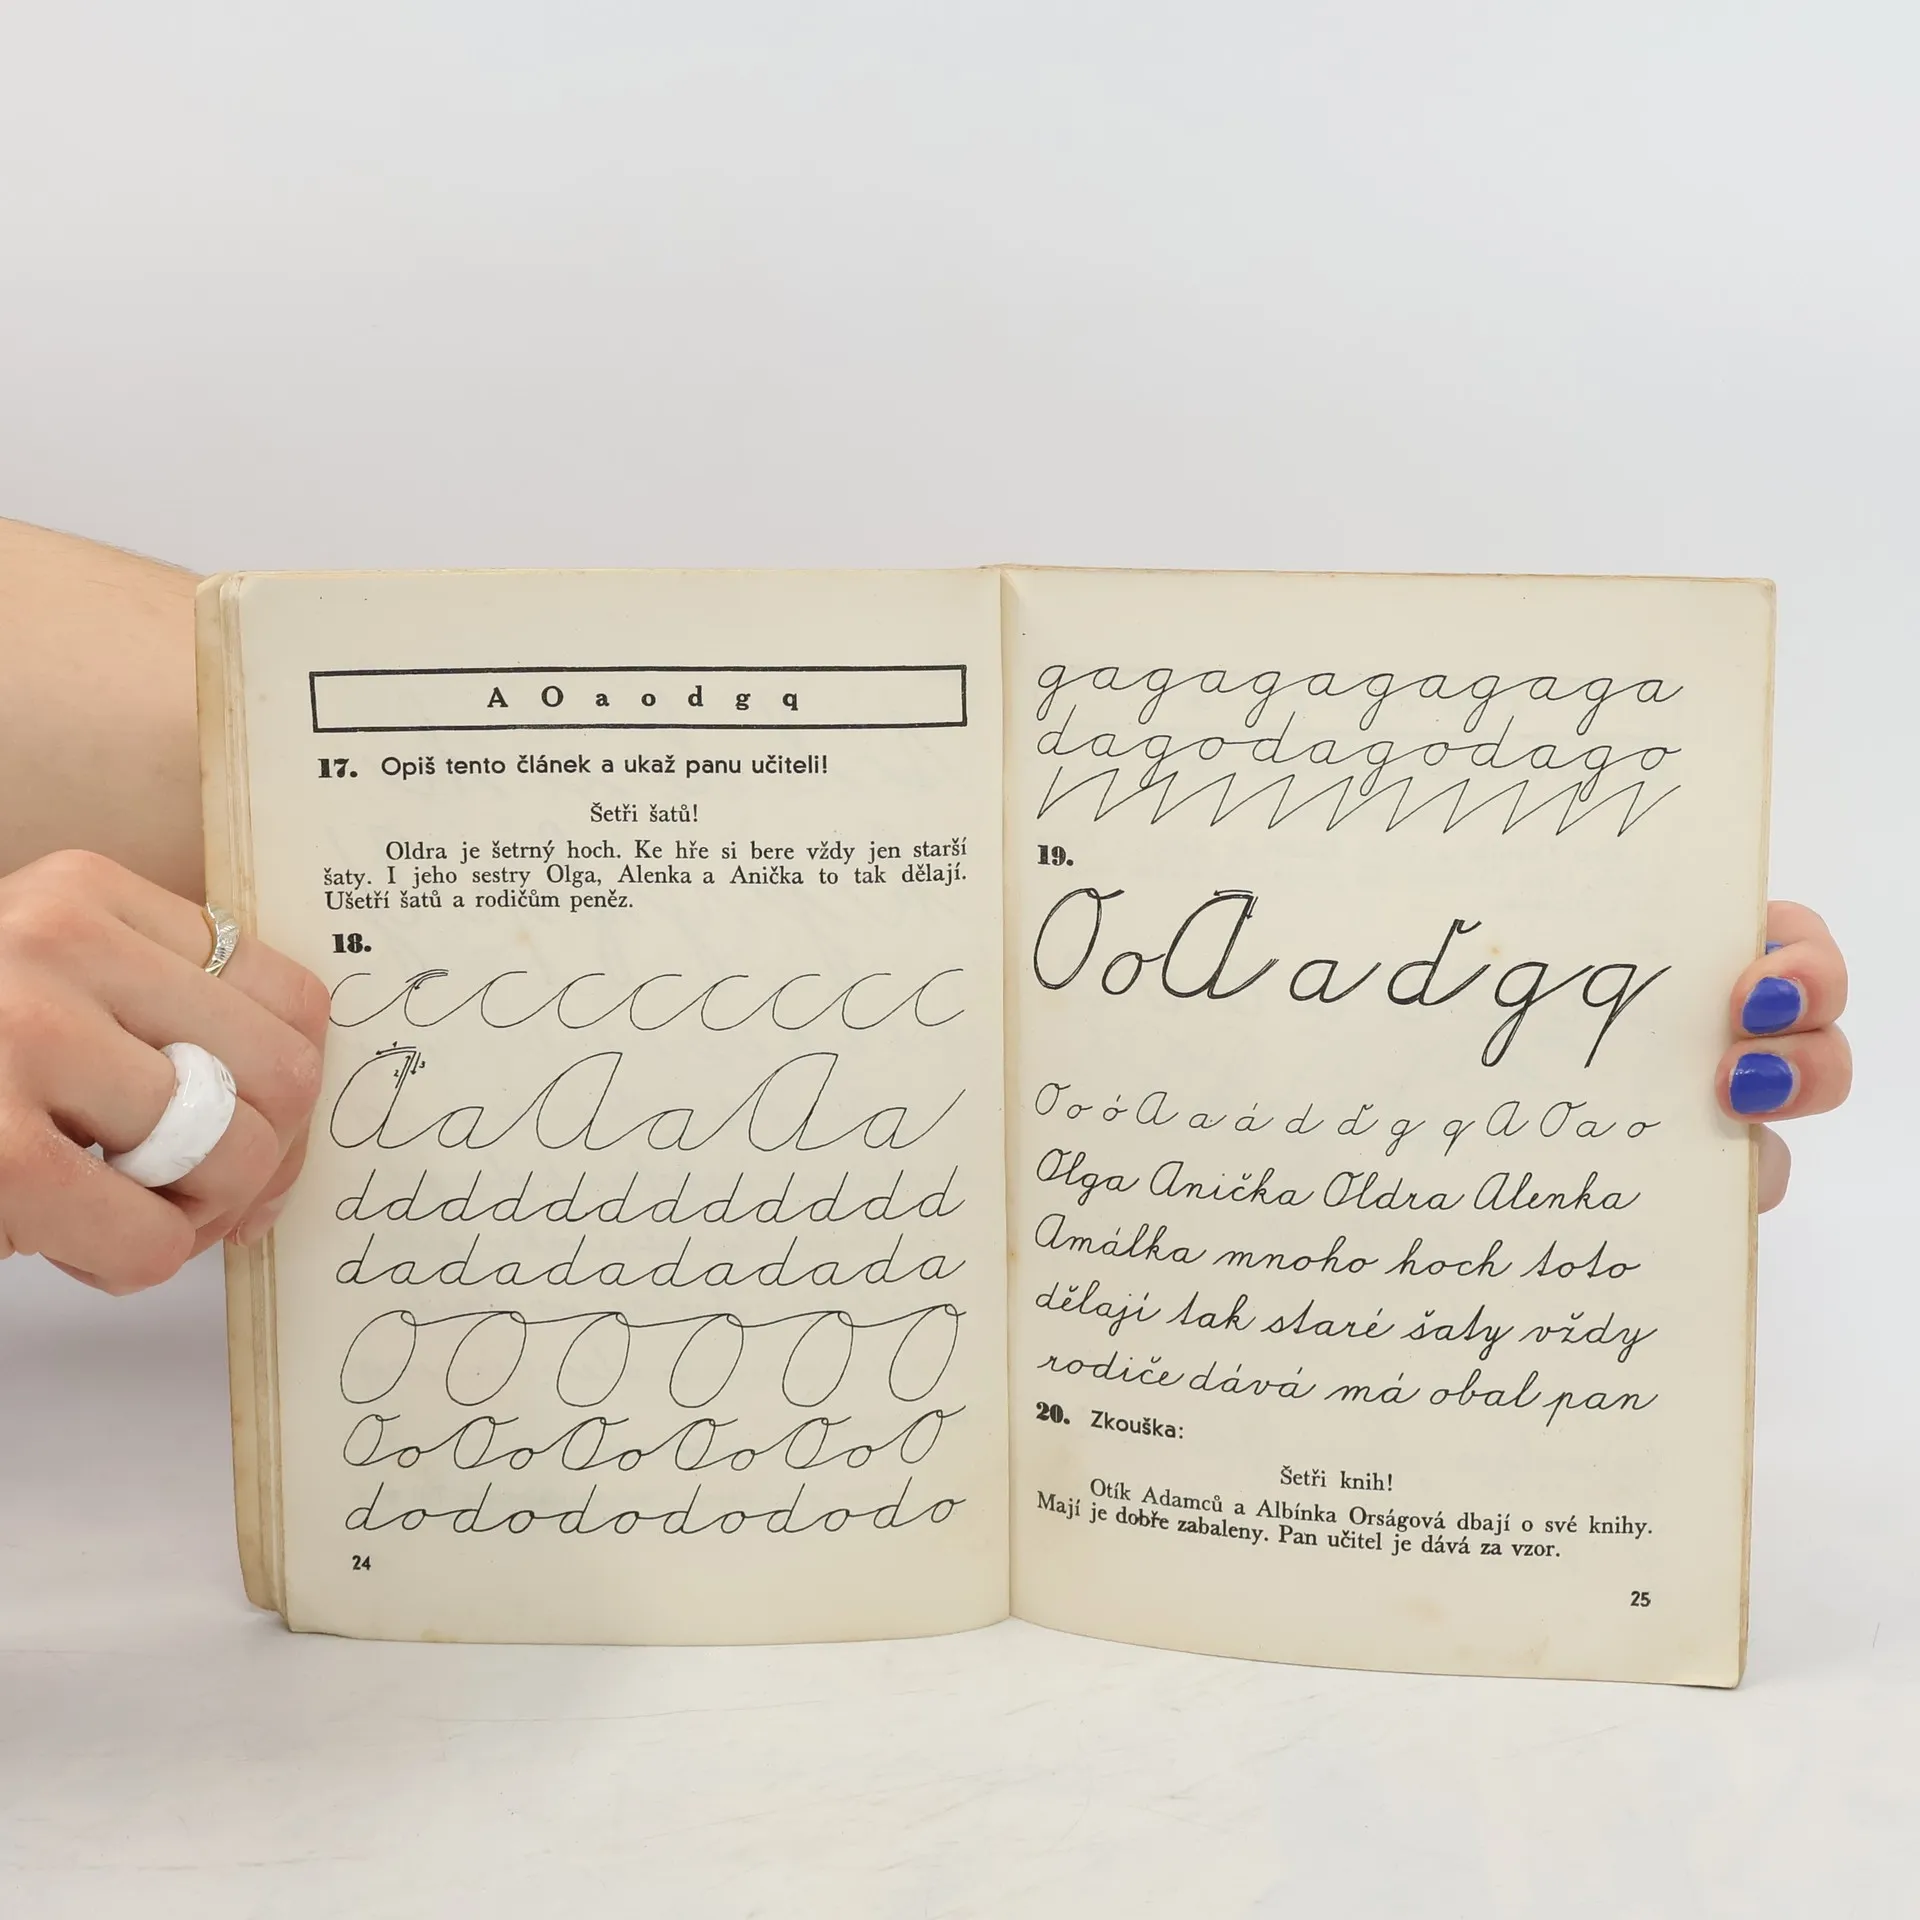 A O a o d g q
17. Opiš tento článek a ukaž panu učiteli!
Šetři šatů!
Oldra je šetrný hoch. Ke hře si bere vždy jen starší
šaty. I jeho sestry Olga, Alenka a Anička to tak dělají.
Ušetří šatů a rodičům peněz.
18.
c c c c c c c c
1 2 3
A a A a A a
d d d d d d d d d d d d
dadadadadada
O O O O O O
O o O o O o O o O o O
dodododododo
24
gagagagagaga
dagodagodago
19.
O o A a ď g q
O o ó A a á d ď g q A O a o
Olga Anička Oldra Alenka
Amálka mnoho hoch toto
dělají tak staré šaty vždy
rodiče dává má obal pan
20. Zkouška:
Šetři knih!
Otík Adamců a Albínka Orságová dbají o své knihy.
Mají je dobře zabaleny. Pan učitel je dává za vzor.
25